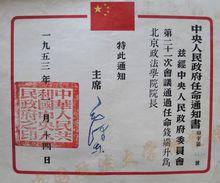 中央人民政府任命通知書
茲經中央人民政府委員會
第二十一次會議通過任命錢端升爲
北京政法學院院長
特此通知
主席
毛澤東
一九五三年
月十四日
中華人民共
和國中央人
民政府之印